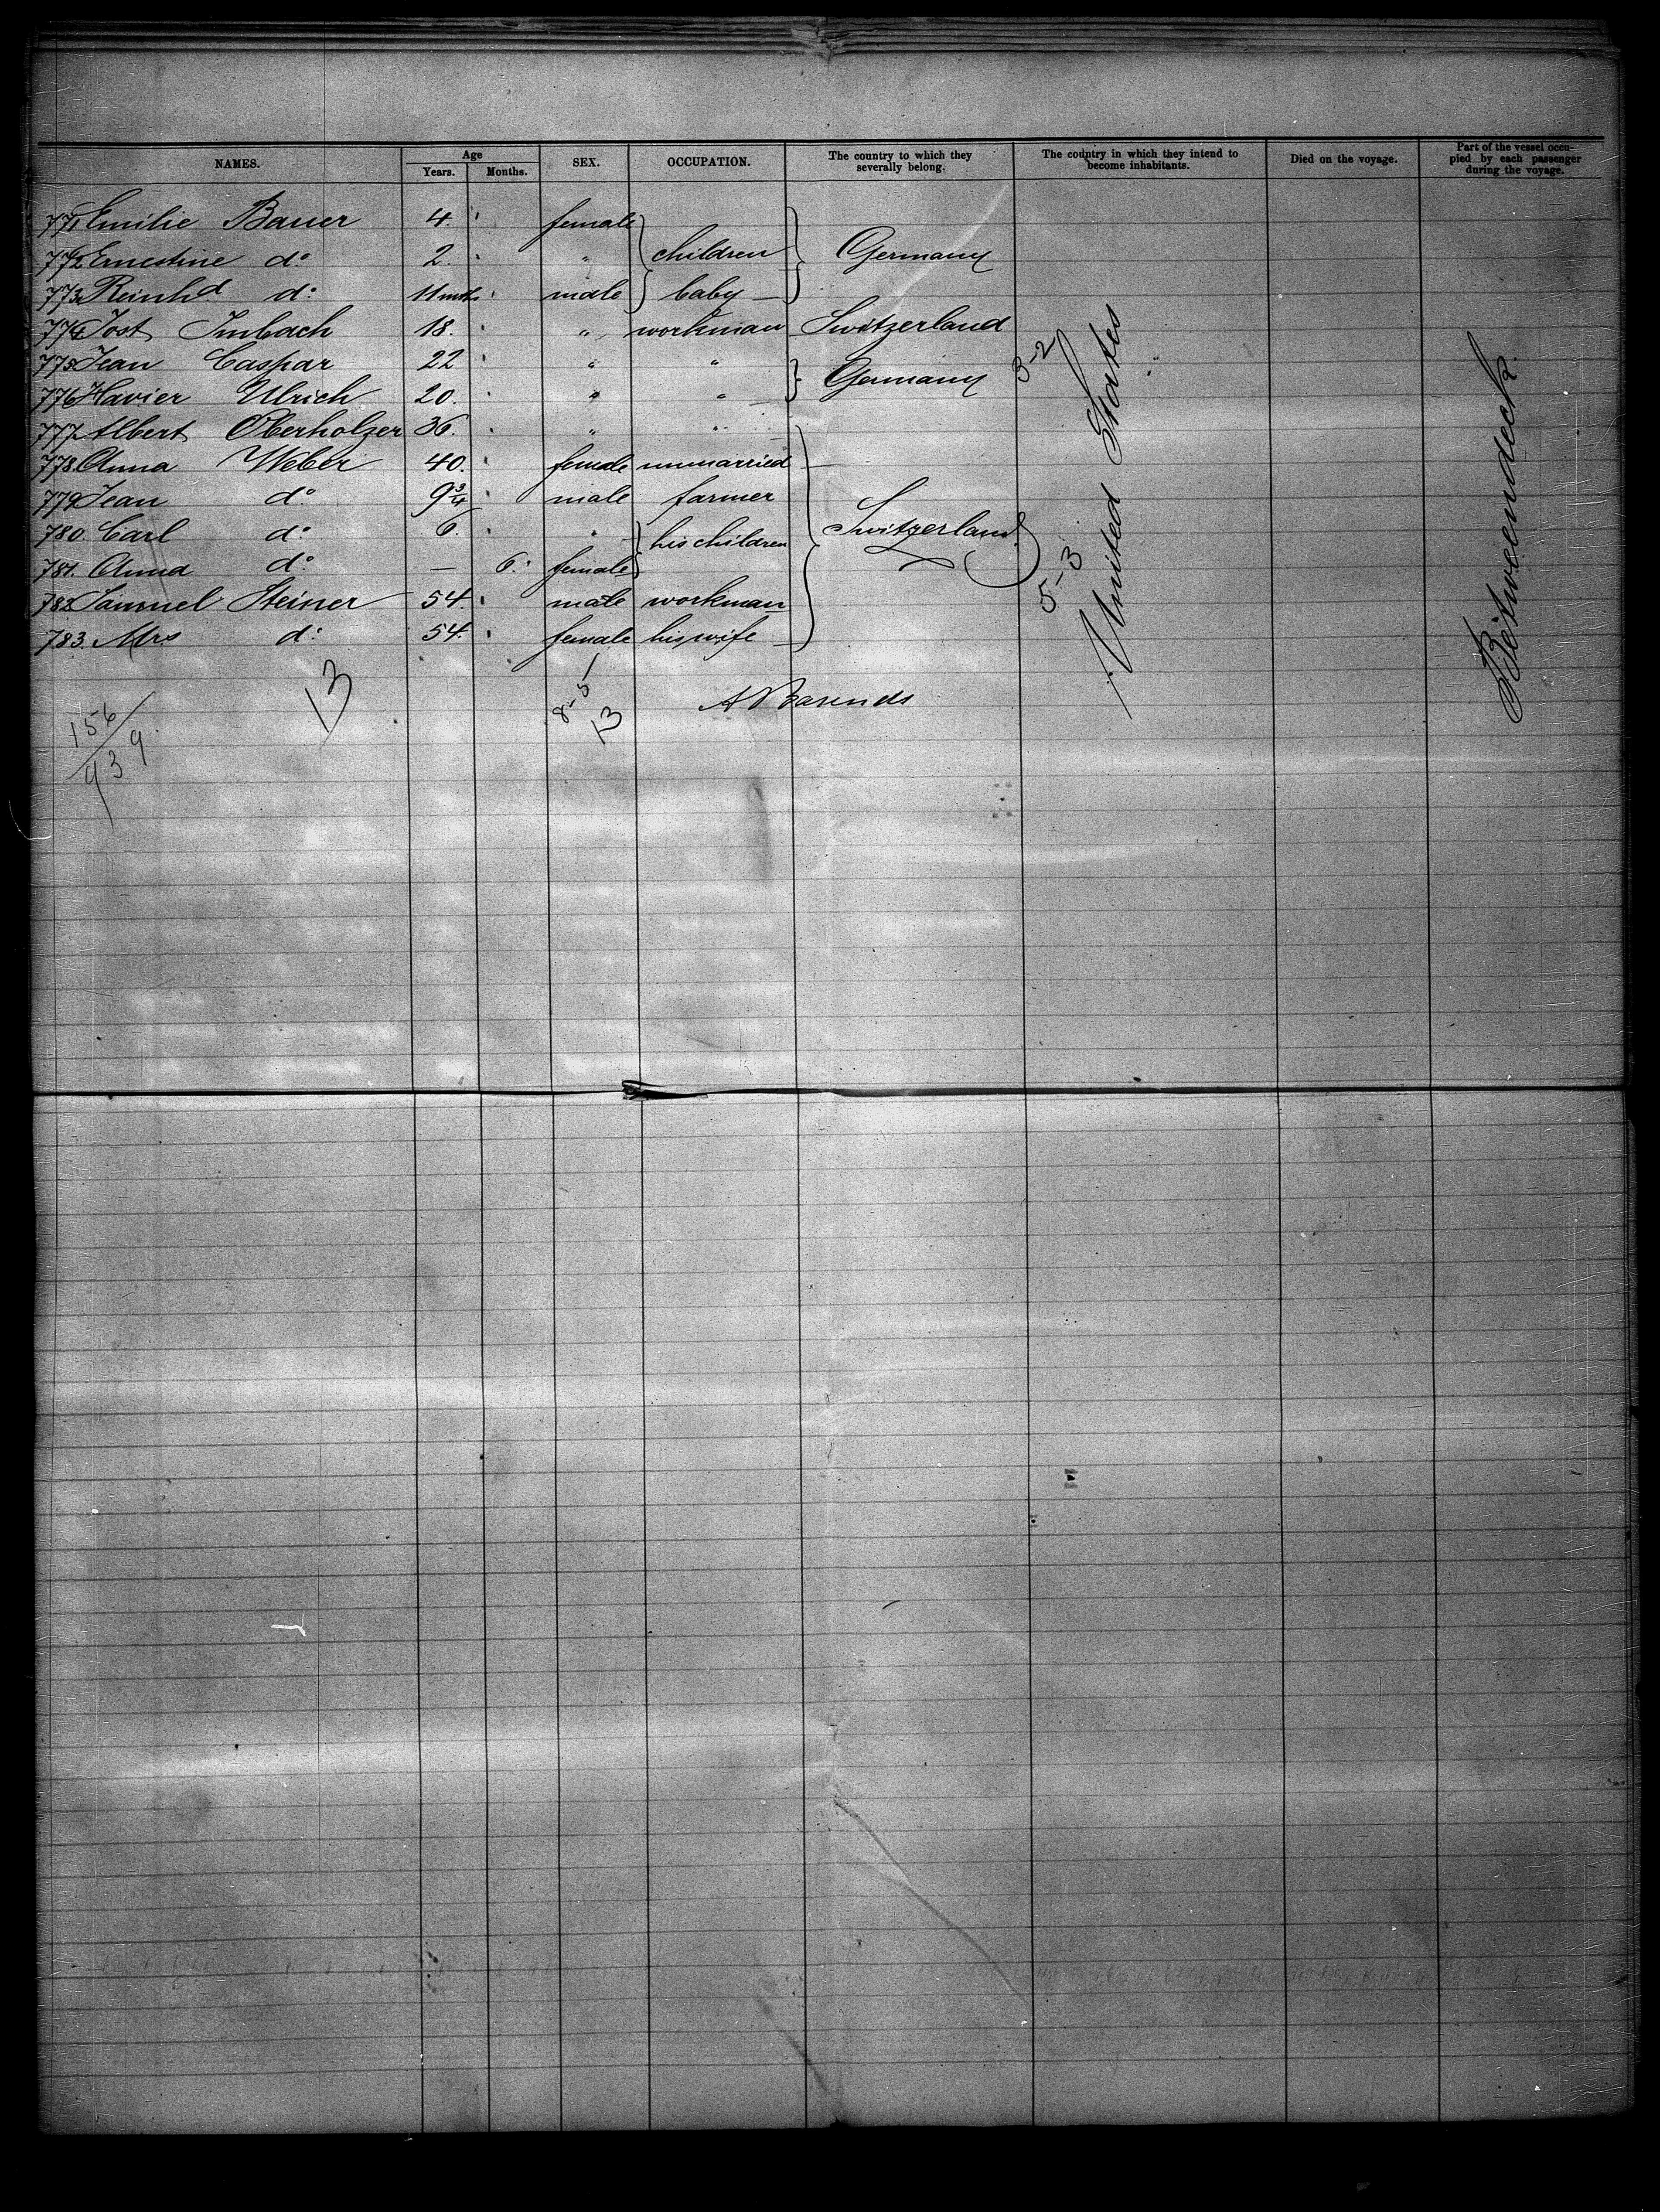 NAMES. Age Years. Months. SEX. OCCUPATION. The country to which they severally belong. The country in which they intend to become inhabitants. Died on the voyage. Part of the vessel occupied by each passenger during the voyage.
771 Emilie Bauer 4. female
772 Ernestine do 2. " children Germany
773 Reinhd do 11 mths male baby
774 Jost Imbach 18. " workman Switzerland
775 Jean Caspar 22 " "
776 Xavier Ulrich 20. " " Germany
777 Albert Oberholzer 36. " "
778. Anna Weber 40. female unmarried
779 Jean do 9 3/4 male farmer
780. Carl do 6. " his children Switzerland
781. Anna do — 6. female
782 Samuel Steiner 54. male workman
783. Mrs do 54. female his wife
3-2
5-3
United States
Betweendeck
13
8-5
13
A Barends
156
939